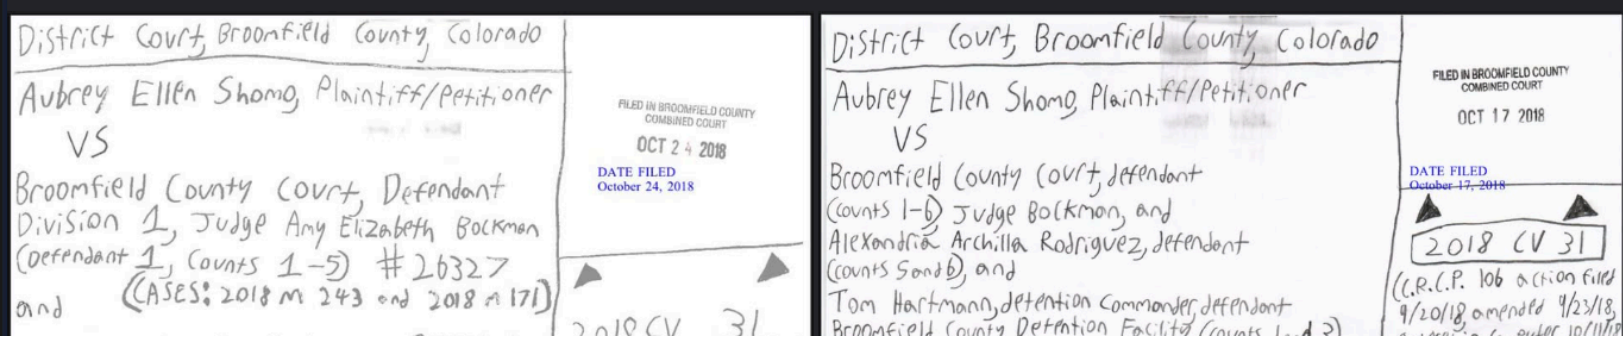 District Court, Broomfield County, Colorado
Aubrey Ellen Shomo, Plaintiff/Petitioner
VS
Broomfield County Court, Defendant
Division 1, Judge Amy Elizabeth Bockman
(Defendant 1, Counts 1-5) #26327
and (CASES: 2018 M 243 and 2018 M 171)
FILED IN BROOMFIELD COUNTY
COMBINED COURT
OCT 24 2018
DATE FILED
October 24, 2018
2018 CV 31
District Court, Broomfield County, Colorado
Aubrey Ellen Shomo, Plaintiff/Petitioner
VS
Broomfield County Court, defendant
(counts 1-6) Judge Bockman, and
Alexandria Archilla Rodriguez, defendant
(counts 5 and 6), and
Tom Hartmann, detention Commander, defendant
Broomfield County Detention Facility (counts
FILED IN BROOMFIELD COUNTY
COMBINED COURT
OCT 17 2018
DATE FILED
October 17, 2018
2018 CV 31
(C.R.C.P. 106 action filed
9/20/18, amended 9/23/18,
10/11/18